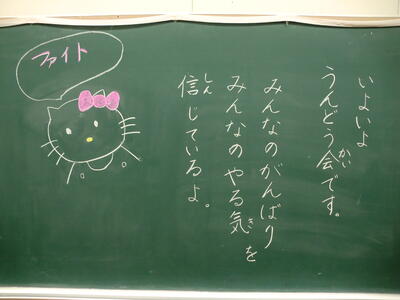 ファイト
いよいよ
うんどう会です。
みんなのがんばり
みんなのやる気を
信じているよ。